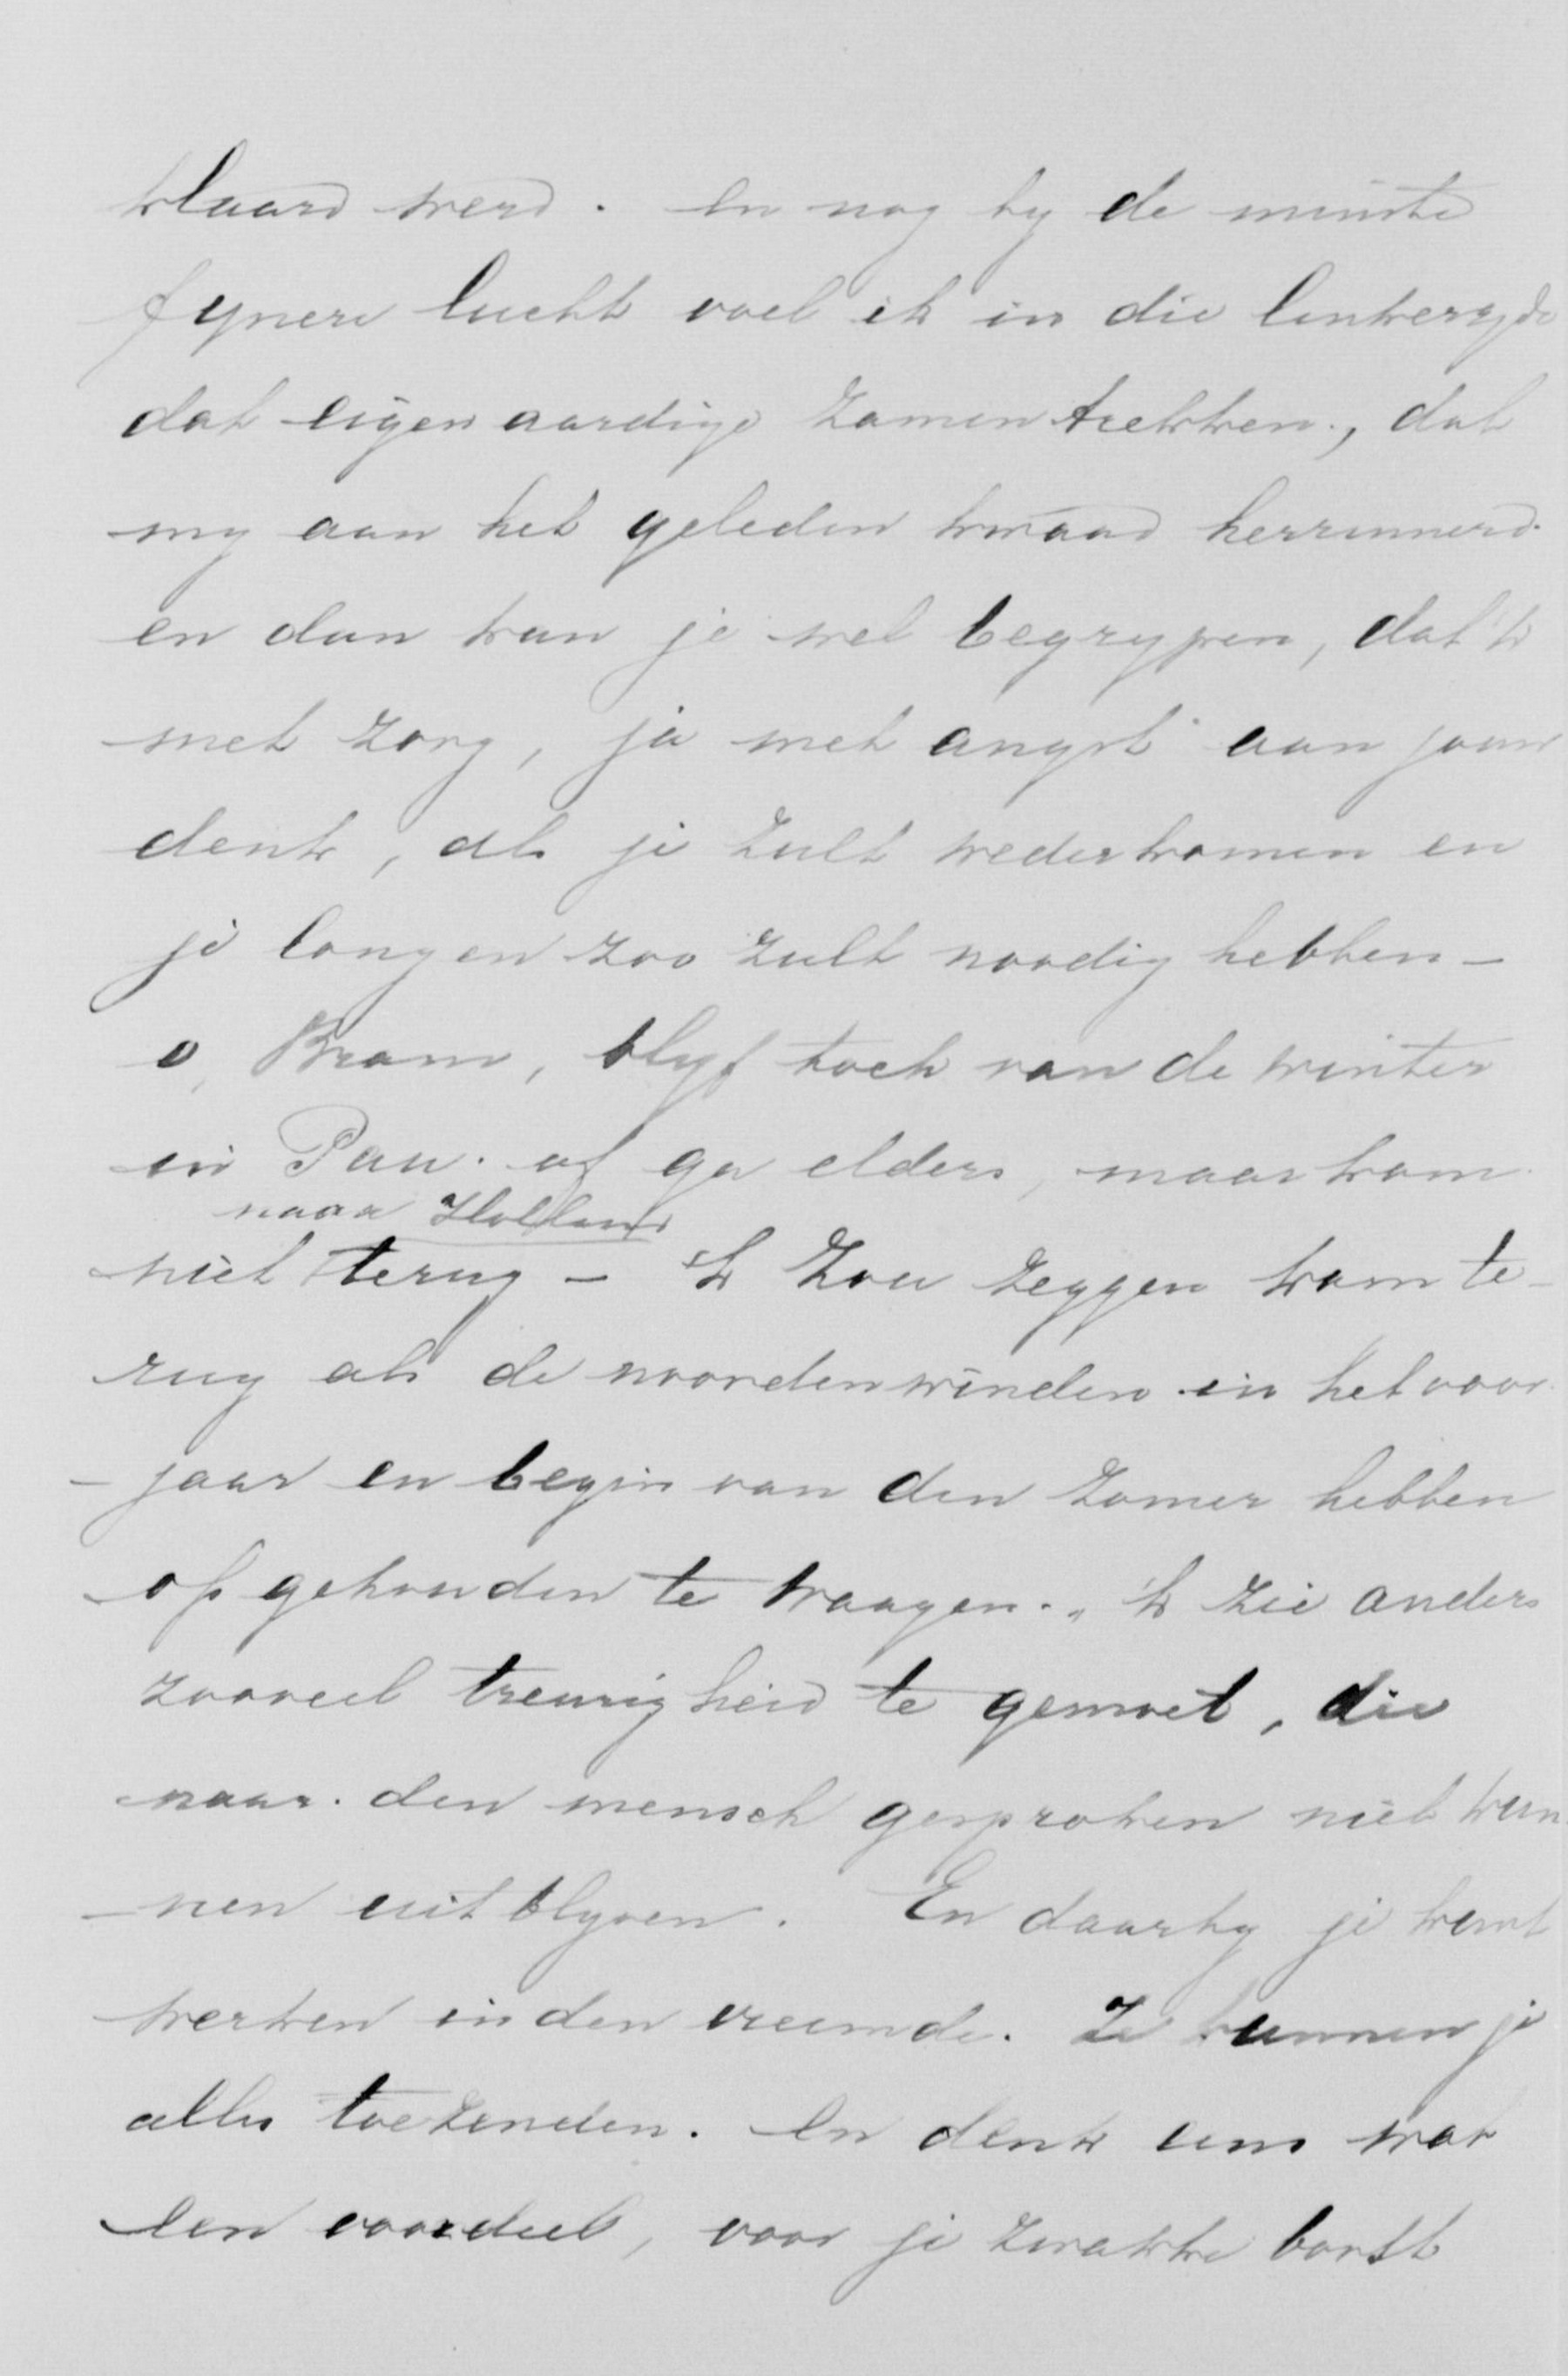 klaard werd. En nog by de minste
fynere lucht voel ik in die linkerzyde
dat eigenaardige zamentrekken, dat
my aan het geleden kwaad herrinnerd.
en dan kan je wel begrypen, dat 'k
met zorg, ja met angst aan jouw
denk, als je zult wederkomen en
je longen zoo zult noodig hebben –
o, Bram, blyf toch van de winter
in Pau. of ga elders, maar kom
naar Holland
niet terug – 'k zou zeggen kom te-
rug als de noordenwinden in het voor
- jaar en begin van den zomer hebben
opgehouden te waagen. 'k zie anders
zooveel treurigheid te gemoet, die
naar den mensch gesproken niet kun
- nen uitblyven. En daarby je kunt
werken in den vreemde. Ze kunnen je
alles toezenden. En denk eens wat
een voordeel, voor je zwakke borst